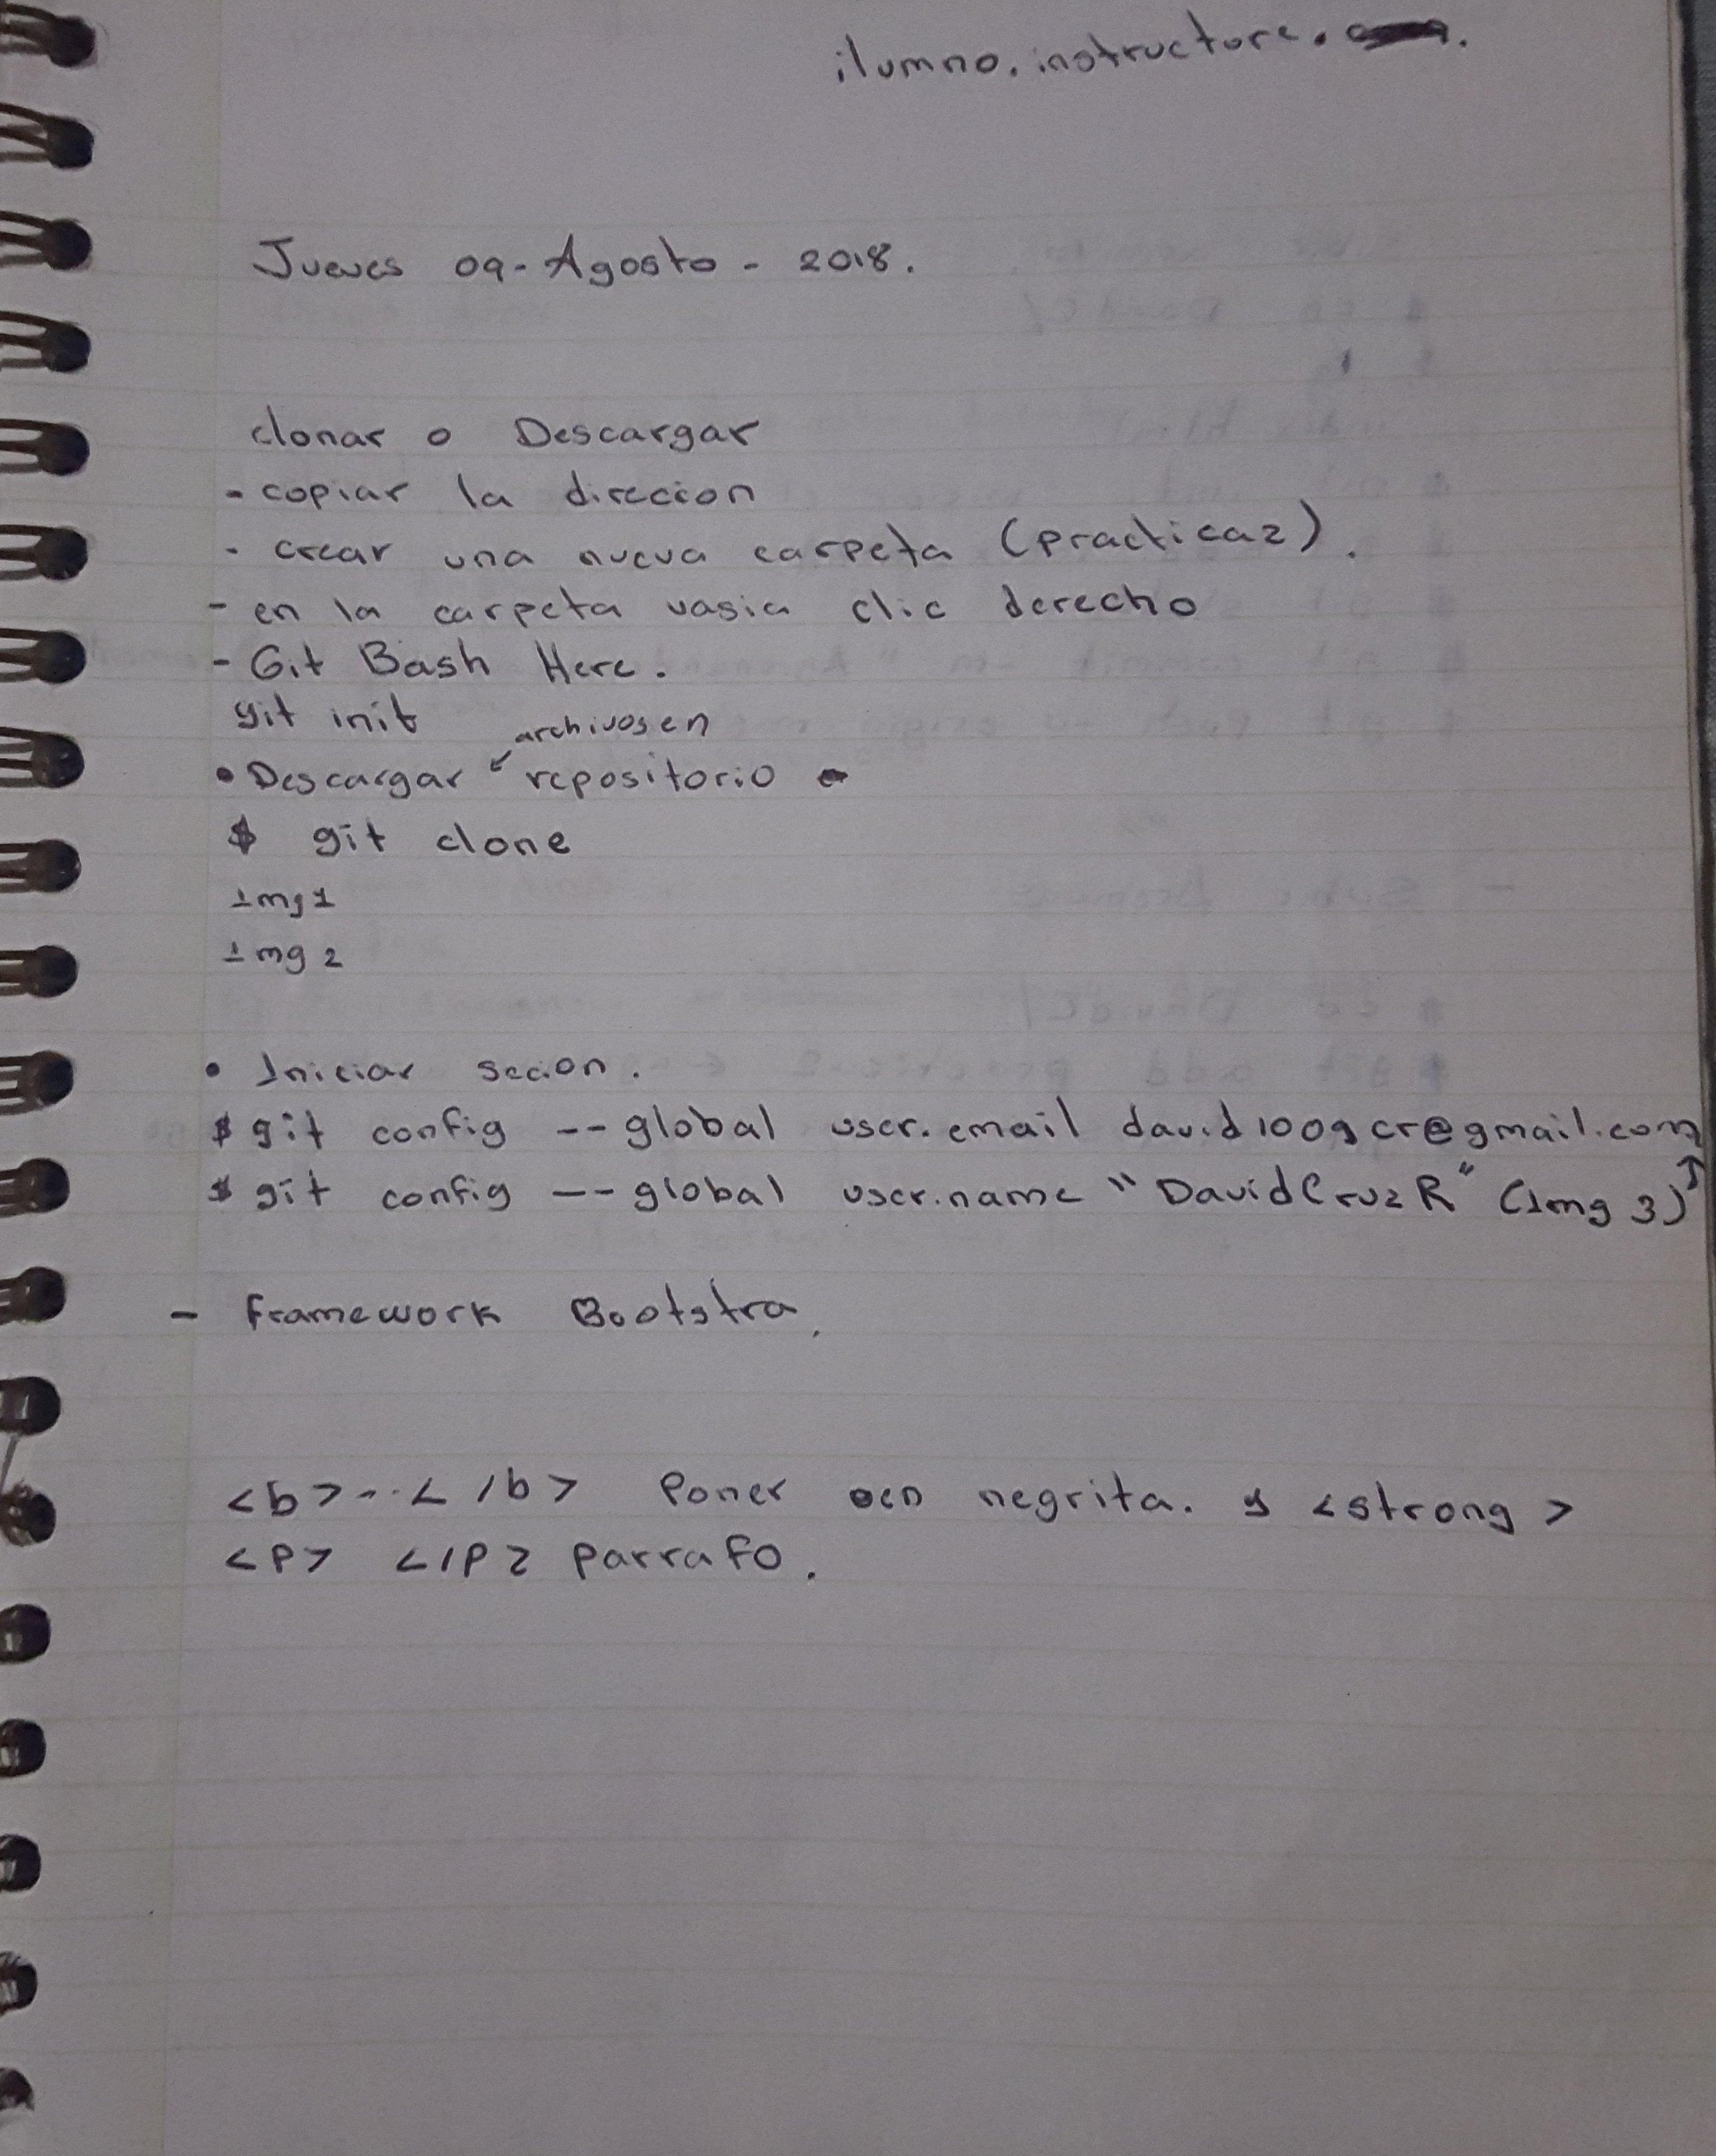 ilumno.instructure.
Jueves 09-Agosto - 2018.
clonar o Descargar
- copiar la direccion
- crear una nueva carpeta (practica2).
- en la carpeta vasia clic derecho
- Git Bash Here.
git init
archivos en
• Descargar repositorio
$ git clone
Img 1
Img 2
• Iniciar secion.
$ git config --global user.email david1009cr@gmail.com
$ git config --global user.name "DavidCruzR" (Img 3)↑
- Framework Bootstra.
<b>...</b> Poner en negrita. y <strong>
<p> </p> Parrafo.